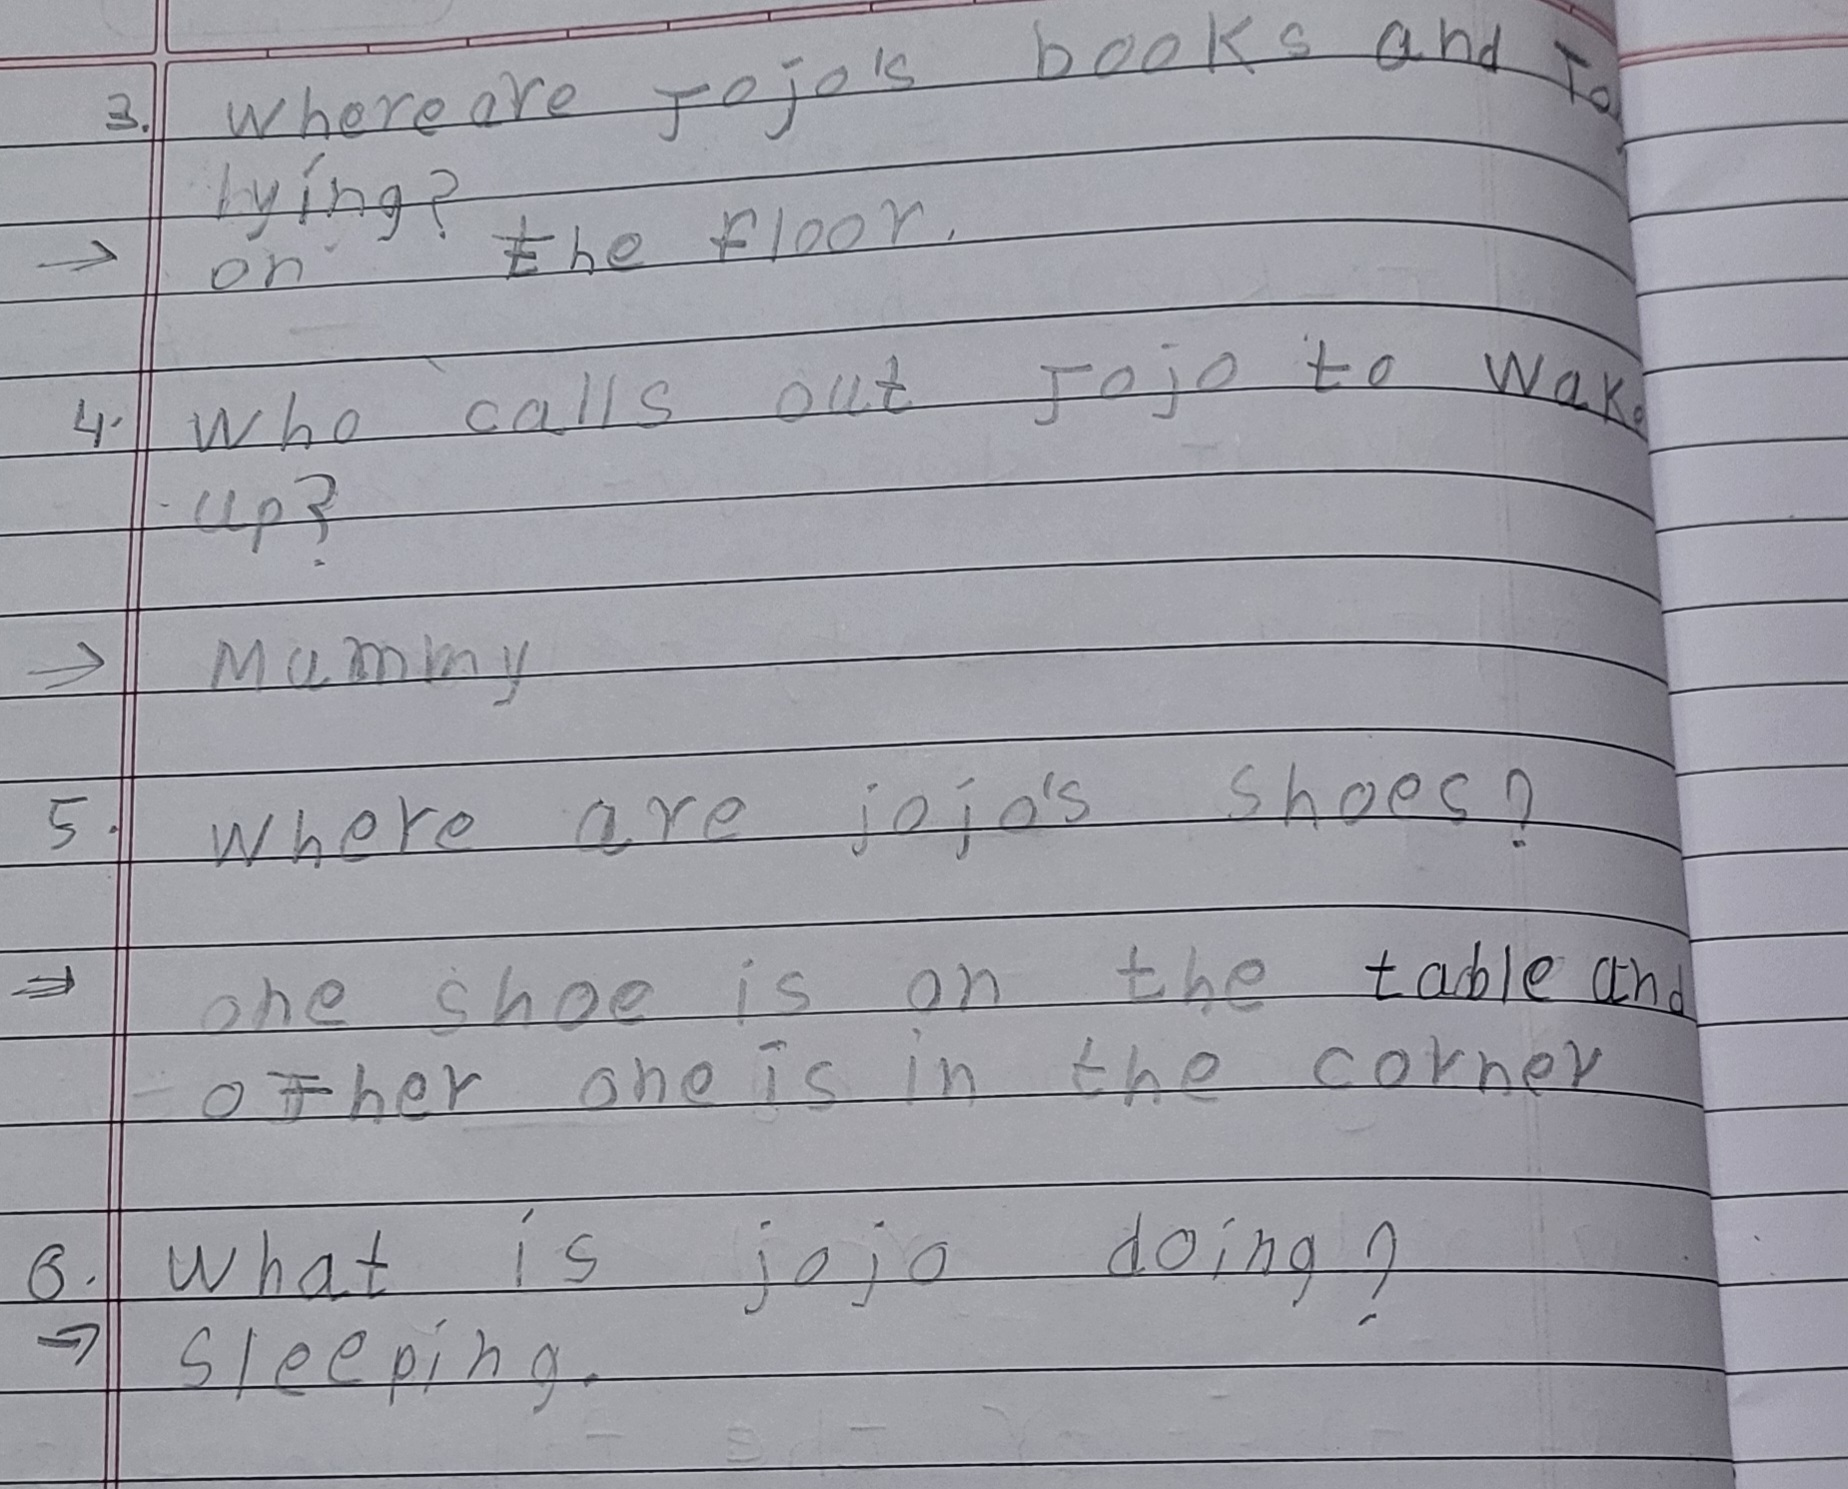 3. Where are Jojo's books and
lying?
→ on the floor.
4. Who calls out Jojo to wake
up?
→ Mummy
5. Where are jojo's shoes?
⇒ one shoe is on the table and
other one is in the corner
6. What is jojo doing?
→ Sleeping.